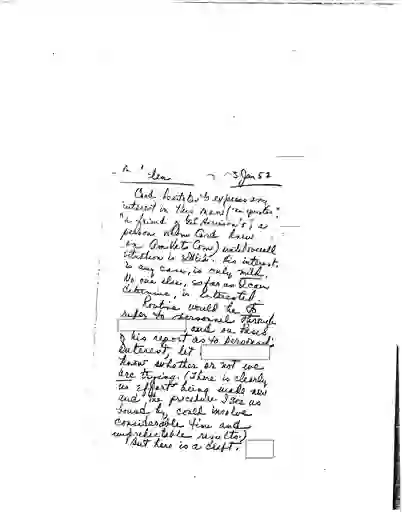 3 Jan 52
Cord hesitates to express any
interest in this man ("in quotes",
"a friend of
person whom Cord knew
on Am Vets Com) until overall
situation is His interest,
in any case, is only mild.
No one else, so far as I can
determine, is interested.
Routine would be to
refer to personnel through
, and on basis
of his report as to personnel's
interest, let
know whether or not we
are trying. (There is clearly
no effort being made now
and the procedure I see us
bound by could involve
considerable time and
unpredictable results.)
But here is a draft.